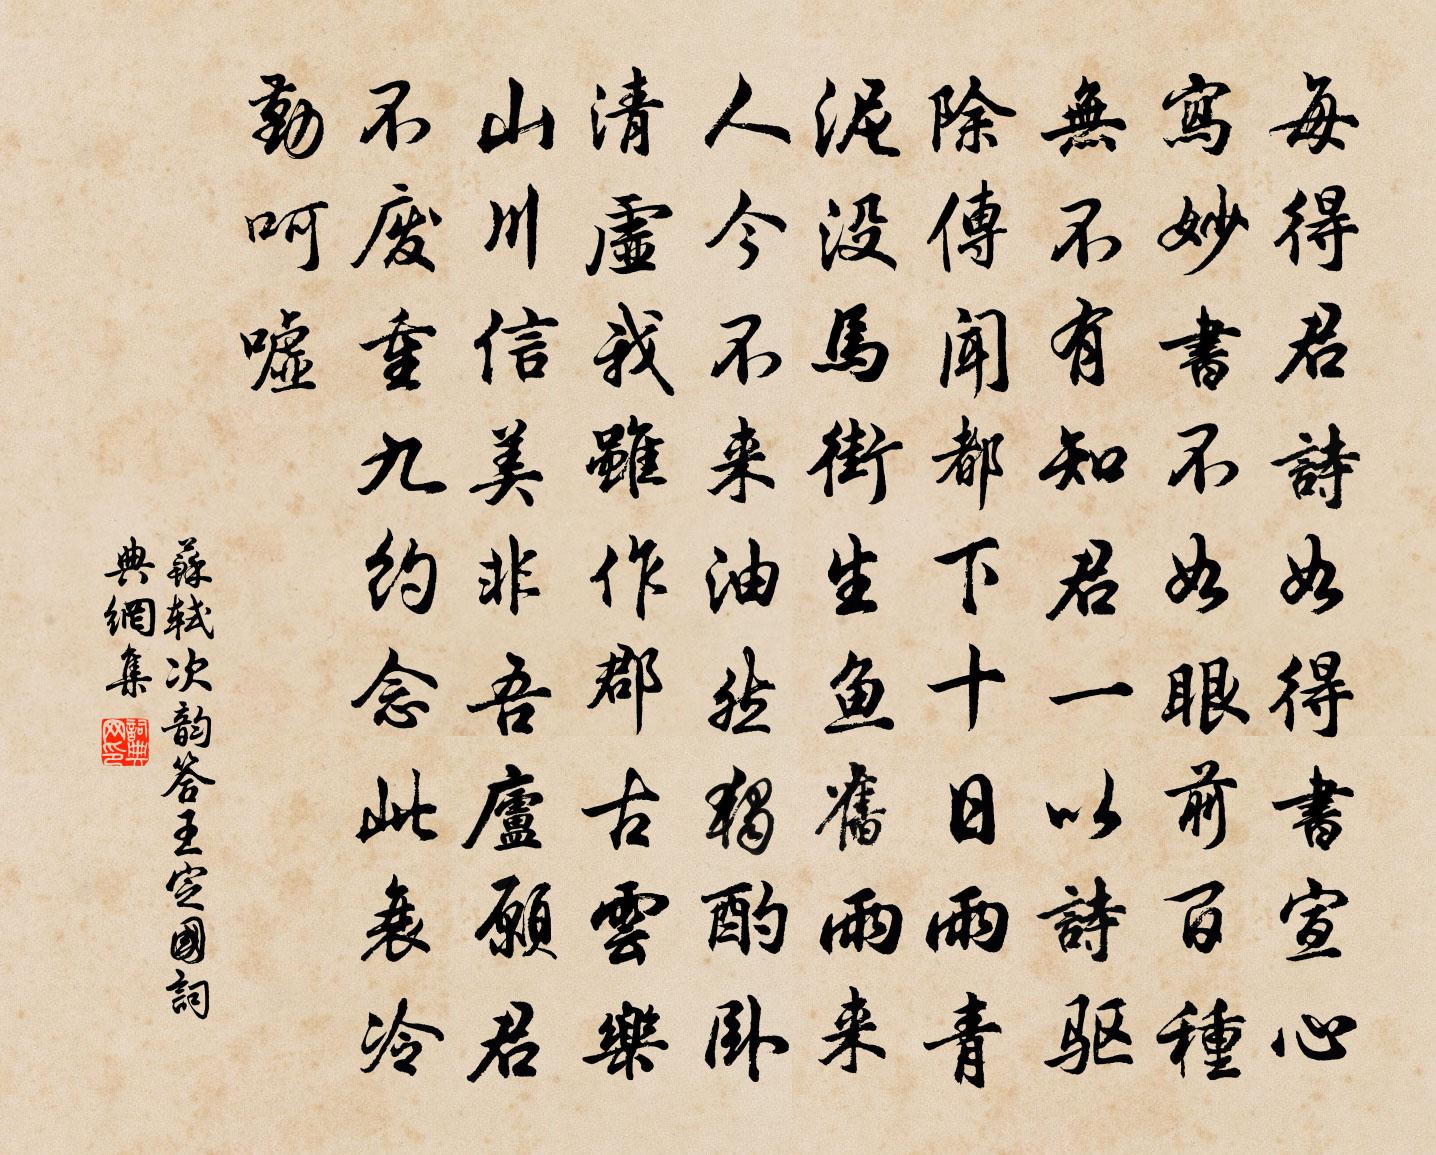 每得君詩如得書宣心
寫妙書不如眼前百種
無不有知君一以詩驅
除傳聞都下十日雨青
泥没馬街生魚舊雨来
人今不来油然獨酌臥
清虛我雖作郡古雲樂
山川信美非吾廬願君
不廢重九約念此衰冷
勤呵噓
蘇軾次韵答王定國詞
典網集
詞典
网印